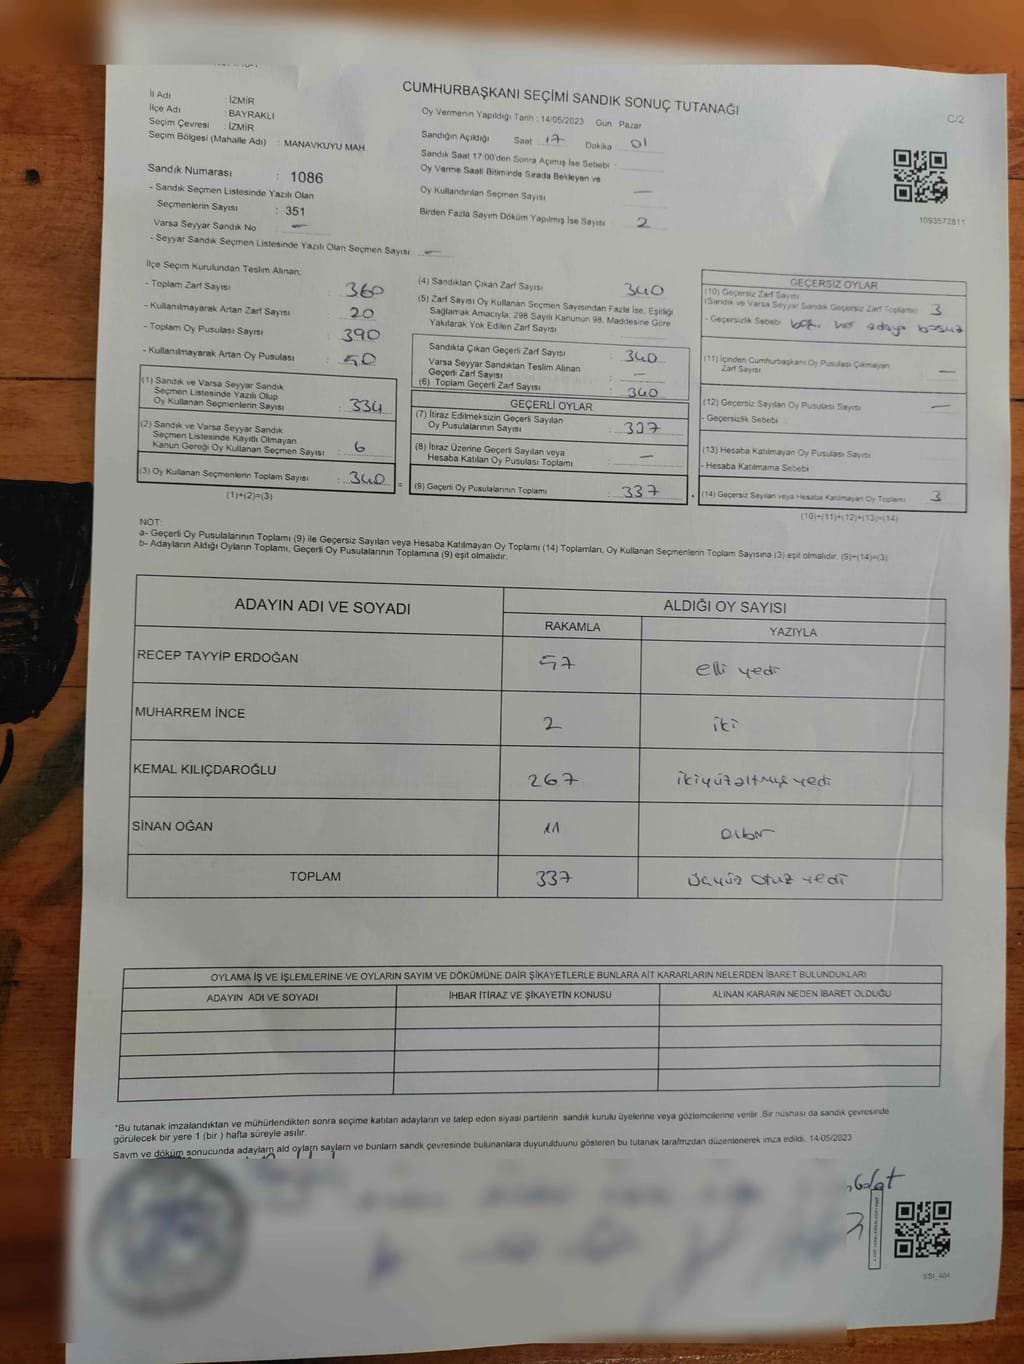 CUMHURBAŞKANI SEÇİMİ SANDIK SONUÇ TUTANAĞI
C/2
İl Adı : İZMİR
İlçe Adı : BAYRAKLI
Seçim Çevresi : İZMİR
Seçim Bölgesi (Mahalle Adı) : MANAVKUYU MAH.
Sandık Numarası : 1086
- Sandık Seçmen Listesinde Yazılı Olan
Seçmenlerin Sayısı : 351
Varsa Seyyar Sandık No : —
- Seyyar Sandık Seçmen Listesinde Yazılı Olan Seçmen Sayısı: —
Oy Vermenin Yapıldığı Tarih : 14/05/2023 Gün : Pazar
Sandığın Açıldığı Saat : 17 Dakika : 01
Sandık Saat 17:00'den Sonra Açımış İse Sebebi :
Oy Verme Saati Bitiminde Sırada Bekleyen ve
Oy Kullandırılan Seçmen Sayısı : —
Birden Fazla Sayım Döküm Yapılmış İse Sayısı : 2
1093572811
İlçe Seçim Kurulundan Teslim Alınan;
- Toplam Zarf Sayısı : 360
- Kullanılmayarak Artan Zarf Sayısı : 20
- Toplam Oy Pusulası Sayısı : 390
- Kullanılmayarak Artan Oy Pusulası : 50
(1) Sandık ve Varsa Seyyar Sandık
Seçmen Listesinde Yazılı Olup
Oy Kullanan Seçmenlerin Sayısı : 334
(2) Sandık ve Varsa Seyyar Sandık
Seçmen Listesinde Kayıtlı Olmayan
Kanun Gereği Oy Kullanan Seçmen Sayısı : 6
(3) Oy Kullanan Seçmenlerin Toplam Sayısı : 340
(1)+(2)=(3)
(4) Sandıktan Çıkan Zarf Sayısı : 340
(5) Zarf Sayısı Oy Kullanan Seçmen Sayısından Fazla İse, Eşitliği
Sağlamak Amacıyla; 298 Sayılı Kanunun 98. Maddesine Göre
Yakılarak Yok Edilen Zarf Sayısı
Sandıkta Çıkan Geçerli Zarf Sayısı : 340
Varsa Seyyar Sandıktan Teslim Alınan
Geçerli Zarf Sayısı : —
(6) Toplam Geçerli Zarf Sayısı : 340
GEÇERLİ OYLAR
(7) İtiraz Edilmeksizin Geçerli Sayılan
Oy Pusulalarının Sayısı : 337
(8) İtiraz Üzerine Geçerli Sayılan veya
Hesaba Katılan Oy Pusulası Toplamı : —
(9) Geçerli Oy Pusulalarının Toplamı : 337
GEÇERSİZ OYLAR
(10) Geçersiz Zarf Sayısı
(Sandık ve Varsa Seyyar Sandık Geçersiz Zarf Toplamı) : 3
- Geçersizlik Sebebi : her adaya
(11) İçinden Cumhurbaşkanı Oy Pusulası Çıkmayan
Zarf Sayısı : —
(12) Geçersiz Sayılan Oy Pusulası Sayısı : —
- Geçersizlik Sebebi :
(13) Hesaba Katılmayan Oy Pusulası Sayısı
- Hesaba Katılmama Sebebi
(14) Geçersiz Sayılan veya Hesaba Katılmayan Oy Toplamı : 3
(10)+(11)+(12)+(13)=(14)
NOT:
a- Geçerli Oy Pusulalarının Toplamı (9) ile Geçersiz Sayılan veya Hesaba Katılmayan Oy Toplamı (14) Toplamları, Oy Kullanan Seçmenlerin Toplam Sayısına (3) eşit olmalıdır. (9)+(14)=(3)
b- Adayların Aldığı Oyların Toplamı, Geçerli Oy Pusulalarının Toplamına (9) eşit olmalıdır.
ADAYIN ADI VE SOYADI ALDIĞI OY SAYISI
RAKAMLA YAZIYLA
RECEP TAYYİP ERDOĞAN 57 elli yedi
MUHARREM İNCE 2 iki
KEMAL KILIÇDAROĞLU 267 ikiyüzaltmış yedi
SİNAN OĞAN 11 onbir
TOPLAM 337 üçyüz otuz yedi
OYLAMA İŞ VE İŞLEMLERİNE VE OYLARIN SAYIM VE DÖKÜMÜNE DAİR ŞİKAYETLERLE BUNLARA AİT KARARLARIN NELERDEN İBARET BULUNDUKLARI
ADAYIN ADI VE SOYADI İHBAR İTİRAZ VE ŞİKAYETİN KONUSU ALINAN KARARIN NEDEN İBARET OLDUĞU
*Bu tutanak imzalandıktan ve mühürlendikten sonra seçime katılan adayların ve talep eden siyasi partilerin sandık kurulu üyelerine veya gözlemcilerine verilir. Bir nüshası da sandık çevresinde
görülecek bir yere 1 (bir) hafta süreyle asılır.
Sayım ve döküm sonucunda adaylarn ald oylarn saylarn ve bunlarn sandk çevresinde bulunanlara duyurulduunu gösteren bu tutanak tarafmzdan düzenlenerek imza edildi. 14/05/2023
SSI_404